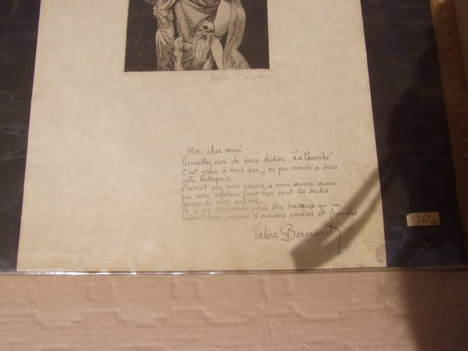 Valère Bernard
Mon cher ami
Permettez moi de vous dédier "La Pauriho"
C'est grâce à vous que j'ai pu mener à bien
cette entreprise.
L'intérêt que vous prenez à mon œuvre ainsi
que votre affection pour moi sont les seules
causes de mon activité.
Je ne demande pour être heureux qu'un
d'amitiés sincères et
Valère Bernard